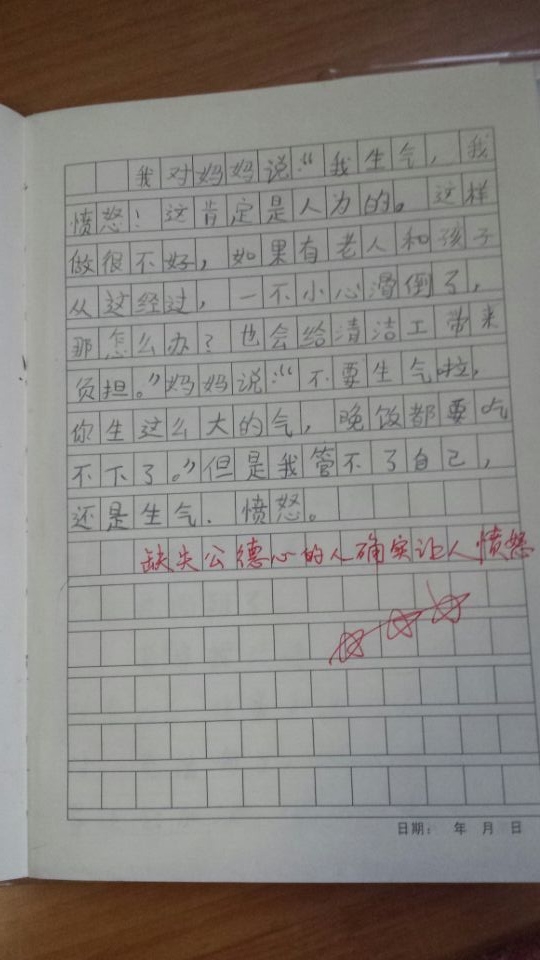 我对妈妈说：“我生气，我
愤怒！这肯定是人为的。这样
做很不好，如果有老人和孩子
从这经过，一不小心滑倒了，
那怎么办？也会给清洁工带来
负担。”妈妈说：“不要生气啦，
你生这么大的气，晚饭都要吃
不下了。”但是我管不了自己，
还是生气．愤怒。
缺失公德心的人确实让人愤怒
日期： 年 月 日